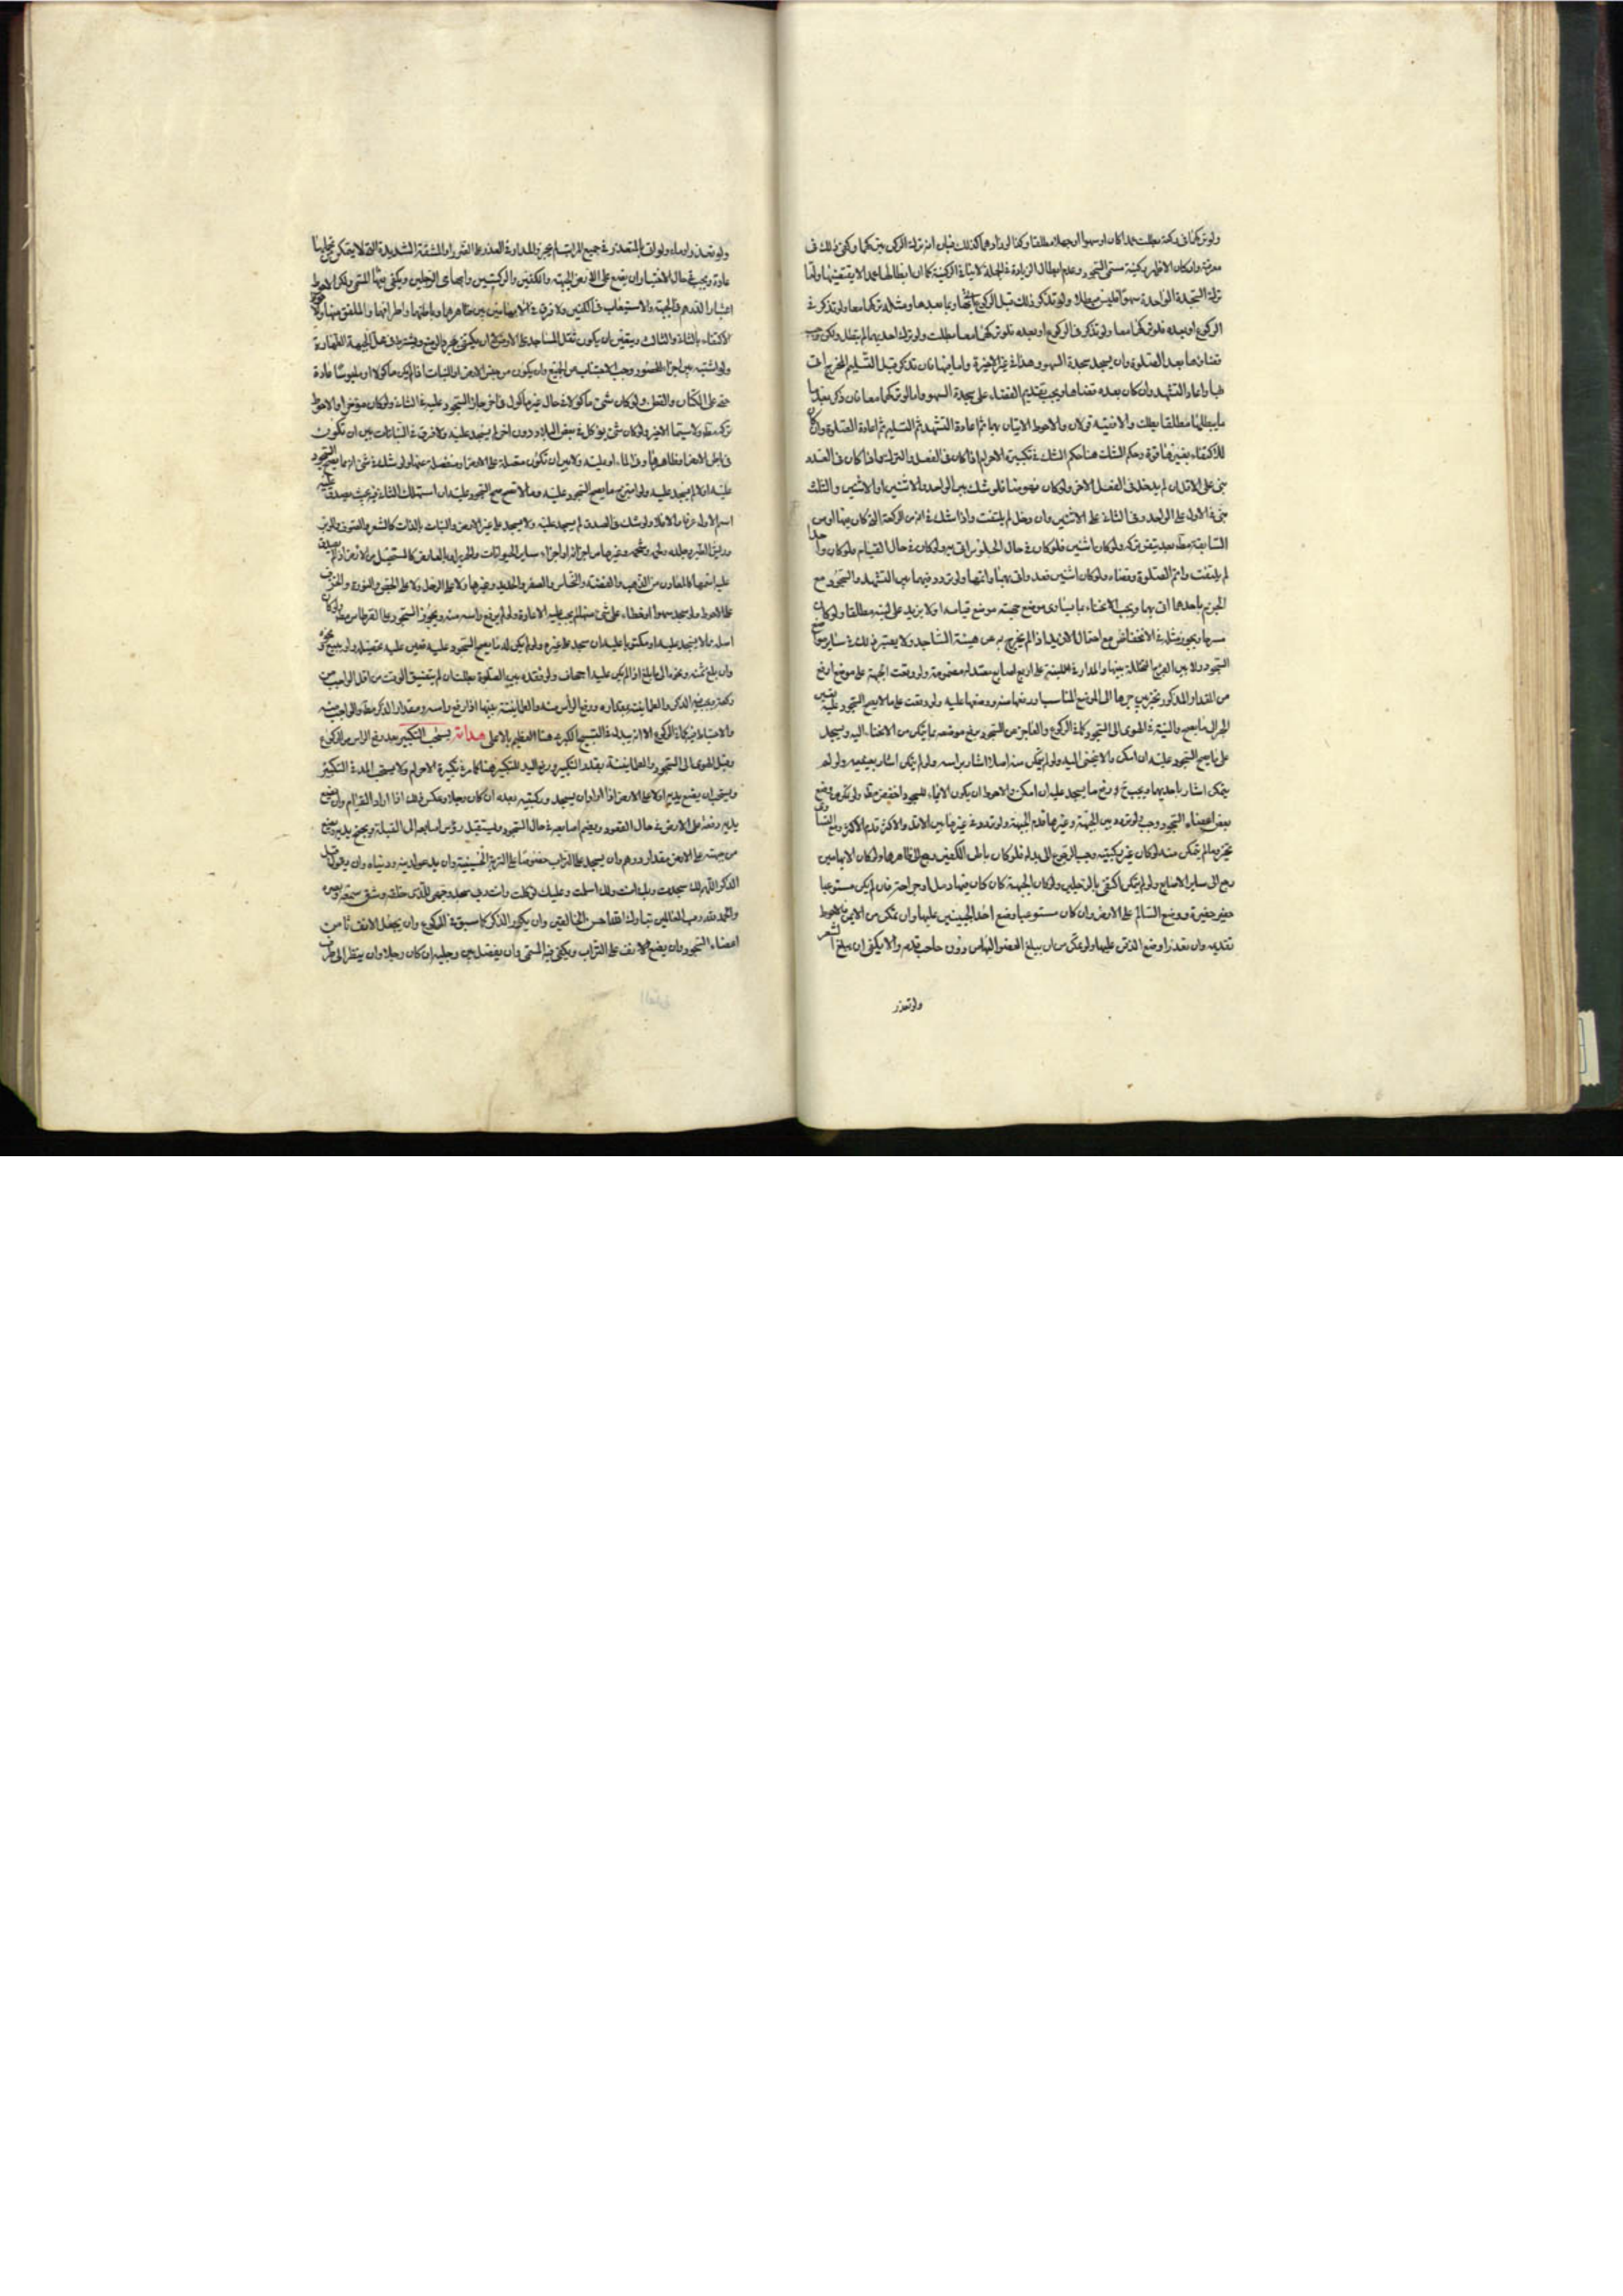 ولو تركهما في ركعة بطلت عمدا كان او سهوا او جهلا مطلقا وكذا لو زادهما كذلك
معرفة وان كان الاظهر ركنية مسمى السجود وعدم ابطال الزيادة في الجملة لا ينافي الركنية كما ان ابطالها عمدا لا يقتضيها واما
ترك السجدة الواحدة سهوا فليس مبطلا ولو تذكر ذلك قبل الركوع وبما بعدها ومثله تركهما معا ولو تذكر في
الركوع او بعده فلو تركهما معا بطلت ولو ترك احديهما لم تبطل ولكن
قضاؤها بعد الصلوة وان يسجد سجدة السهو وهذا في غير الاخيرة واما فيها فان تذكر قبل التسليم المخرج اتى
بها واعاد التشهد وان كان بعده قضاها ويجب تقديم القضاء على سجدة السهو واما لو تركهما معا فان ذكر بعد
ما يبطلها مطلقا بطلت والا ففيه قولان والاحوط الاتيان بها ثم اعادة التشهد ثم التسليم ثم اعادة الصلوة وان كان
للاكتفاء بغيرها قوة وحكم الشك هنا حكم الشك في تكبيرة الاحرام اذا كان في الفعل والترك واما اذا كان في العدد
بنى على الاقل ان لم يدخل في الفعل الاخر ولو كان مفروضا فلو شك بين الواحد والاثنين او الاثنين والثلث
بنى في الاول على الواحد وفي الثاني على الاثنين وان دخل لم يلتفت واذا شك في انه من الركعة التي كان فيها او من
السابقة بعد تيقن تركه ولو كان اثنتين فلو كان في حال الجلوس اتى به ولو كان في حال القيام فلو كان واحدا
لم يلتفت واتم الصلوة وقضاه ولو كان اثنتين قعد واتى بهما واتمها ولو تردد فيهما بين التشهد والسجود مع
الجزم باحدهما اتى بهما ويجب الانحناء بما يساوى موضع جبهته موضع قيامه او لا يزيد على لبنة مطلقا ولو كان
ويجوز مثله في الانخفاض مع احتمال الازيد اذا لم يخرج به عن هيئة الساجد ولا يعتبر ذلك في ساير مواضع
السجود ولا بين الفرج المتخللة بينها والمدار في اللبنة على اربع اصابع معتدلة مضمومة ولو وقعت الجبهة على موضع ارفع
من المقدار المذكور تخير بين جرها الى الموضع المناسب او رفعها منه ووضعها عليه ولو وقعت على ما لا يصح السجود عليه تعين
الجر الى ما يصح والنية في الهوى الى السجود كما في الركوع والعاجز عن السجود يرفع موضعه بما يتمكن من الانحناء اليه ويسجد
على ما يصح السجود عليه ان امكن والا ينحنى اليه ولو لم يتمكن منه اصلا اشار براسه ولو لم يتمكن اشار بعينيه ولو لم
يتمكن اشار باحديهما ويجب ح رفع ما يسجد عليه ان امكن والاحوط ان يكون الايماء للسجود اخفض وضع
بعض اعضاء السجود وجب بين الجبهة وغيرها قدم الجبهة ولو تردد في غيرها بين الاقل والاكثر قدم الاكثر
ما لم يتمكن منه لو كان غير ركبتيه وجب الرجوع الى بدله فلو كان باطن الكفين رجع الى ظاهرها ولو كان الابهامين
رجع الى ساير الاصابع ولو لم يتمكن اكتفى بالرجلين ولو كان الجبهة كان كان فيها دمل او جراحة فان لم يكن مستوعبا
حفر حفيرة ووضع السالم على الارض وان كان مستوعبا وضع احد الجبينين عليها وان تمكن من الايمن فالاحوط
تقديمه وان تعذرا وضع الذقن عليها ولو تمكن من ان يبلغ
ولو تعذر
ولو تعذر اوماء ولو اتى بالمتعذر في جميع المراتب لم يجز والمدار في العذر على الضرر او المشقة الشديدة التى لا يتمكن تحملها
عادة ويجب في حال الاختيار ان يضع على الارض الجبهة والكفين والركبتين وابهامى الرجلين ويكفى فيها المسمى ولكن الاحوط
اعتبار الدرهم في الجبهة والاستيعاب في الكفين ولا فرق في الابهامين بين ظاهرهما وباطنهما واطرافهما والملفق منها
الاكتفاء بالثاني والثالث ويتعين ان يكون ثقل المساجد على الارض فلا يكفى مجرد الوضع ويشترط في محل الجبهة الطهارة
ولو اشتبه بين اجزاء محصور وجب الاجتناب عن الجميع وان يكون من جنس الارض او النبات اذا لم يكن ماكولا او ملبوسا عادة
حتى على الكتان والقطن ولو كان شئ ماكولا في حال غير ماكول في اخر جاز السجود عليه في الثاني ولو كان مؤخرا والاحوط
تركه ولا سيما الاخير ولو كان شئ يؤكل في بعض البلاد دون اخر لم يسجد عليه ولا فرق في النباتات بين ان تكون
في باطن الارض او ظاهرها وفي الماء او عليه ولا بين ان تكون متصلة على الارض او منفصلة عنها ولو شك في شئ انه مما يصح السجود
عليه او لا لم يسجد عليه ولو امتزج ما يصح السجود عليه وما لا تصح صح السجود عليه ان استهلك الثاني بحيث صدق عليه
اسم الاول عرفا والا فلا ولو شك في الصدق لم يسجد عليه ولا يسجد على غير الارض والنبات بالذات كالشعر والصوف والوبر
وريش الطير وجلده ولحمه وشحمه وغيرها من اجزائه واجزاء ساير الحيوانات والحرير او بالعارض كالمستحيل من الارض اذا لم يصدق
عليه اسمها كالمعادن من الذهب والفضة والنحاس والصفر والحديد وغيرها ولا على الوحل ولا على الجص والنورة والخزف
على الاحوط ولو سجد سهوا او خطاء على شئ منها لم يجب عليه الاعادة ولو لم يرفع راسه منه ويجوز السجود على القرطاس ولو كان
اصله مما لا يسجد عليه او مكتوبا عليه ان سجد على غيره ولو لم يكن له ما يصح السجود عليه تعين عليه تحصيله ولو ببيع
وان بلغ ثمنه ما بلغ اذا لم يكن عليه اجحاف ولو فقده بين الصلوة بطلت ان لم يتضيق الوقت من اقل الواجب من
ركعة ويجب فيه الذكر والطمانينة بمقداره ورفع الراس منه والطمانينة بينها اذا رفع راسه ومقدار الذكر والواجب منه
والاحتياط فيه كما في الركوع الا انه يبدل في التسبيحة الكبرى هنا العظيم بالاعلى هداية يستحب التكبير بعد رفع الراس من الركوع
وقبل الهوى الى السجود والطمانينة بقدر التكبير ورفع اليد للتكبير هنا كما مر في تكبيرة الاحرام ولا يستحب المد في التكبير
ويستحب ان يضع يديه اولا على الارض اذا اراد ان يسجد وركبتيه بعده ان كان رجلا وعكس ذلك اذا اراد القيام وان يضع
يديه على الارض في حال القعود ويضم اصابعه في حال السجود وليستقبل رؤس اصابعه الى القبلة
من جبهته على الارض مقدار درهم وان يسجد على التراب خصوصا على التربة الحسينية وان يدعو لدينه ودنياه وان يقول قبل
الذكر اللهم لك سجدت وبك امنت ولك اسلمت وعليك توكلت وانت ربى سجد وجهى للذى خلقه وشق سمعه وبصره
والحمد لله رب العالمين تبارك الله احسن الخالقين وان يكرر الذكر كما سبق في الركوع وان يجعل الانف ثامن
اعضاء السجود وان يضع الانف على التراب ويكفى فيه المسمى وان يفصل بين رجليه ان كان رجلا وان ينظر الى طرف